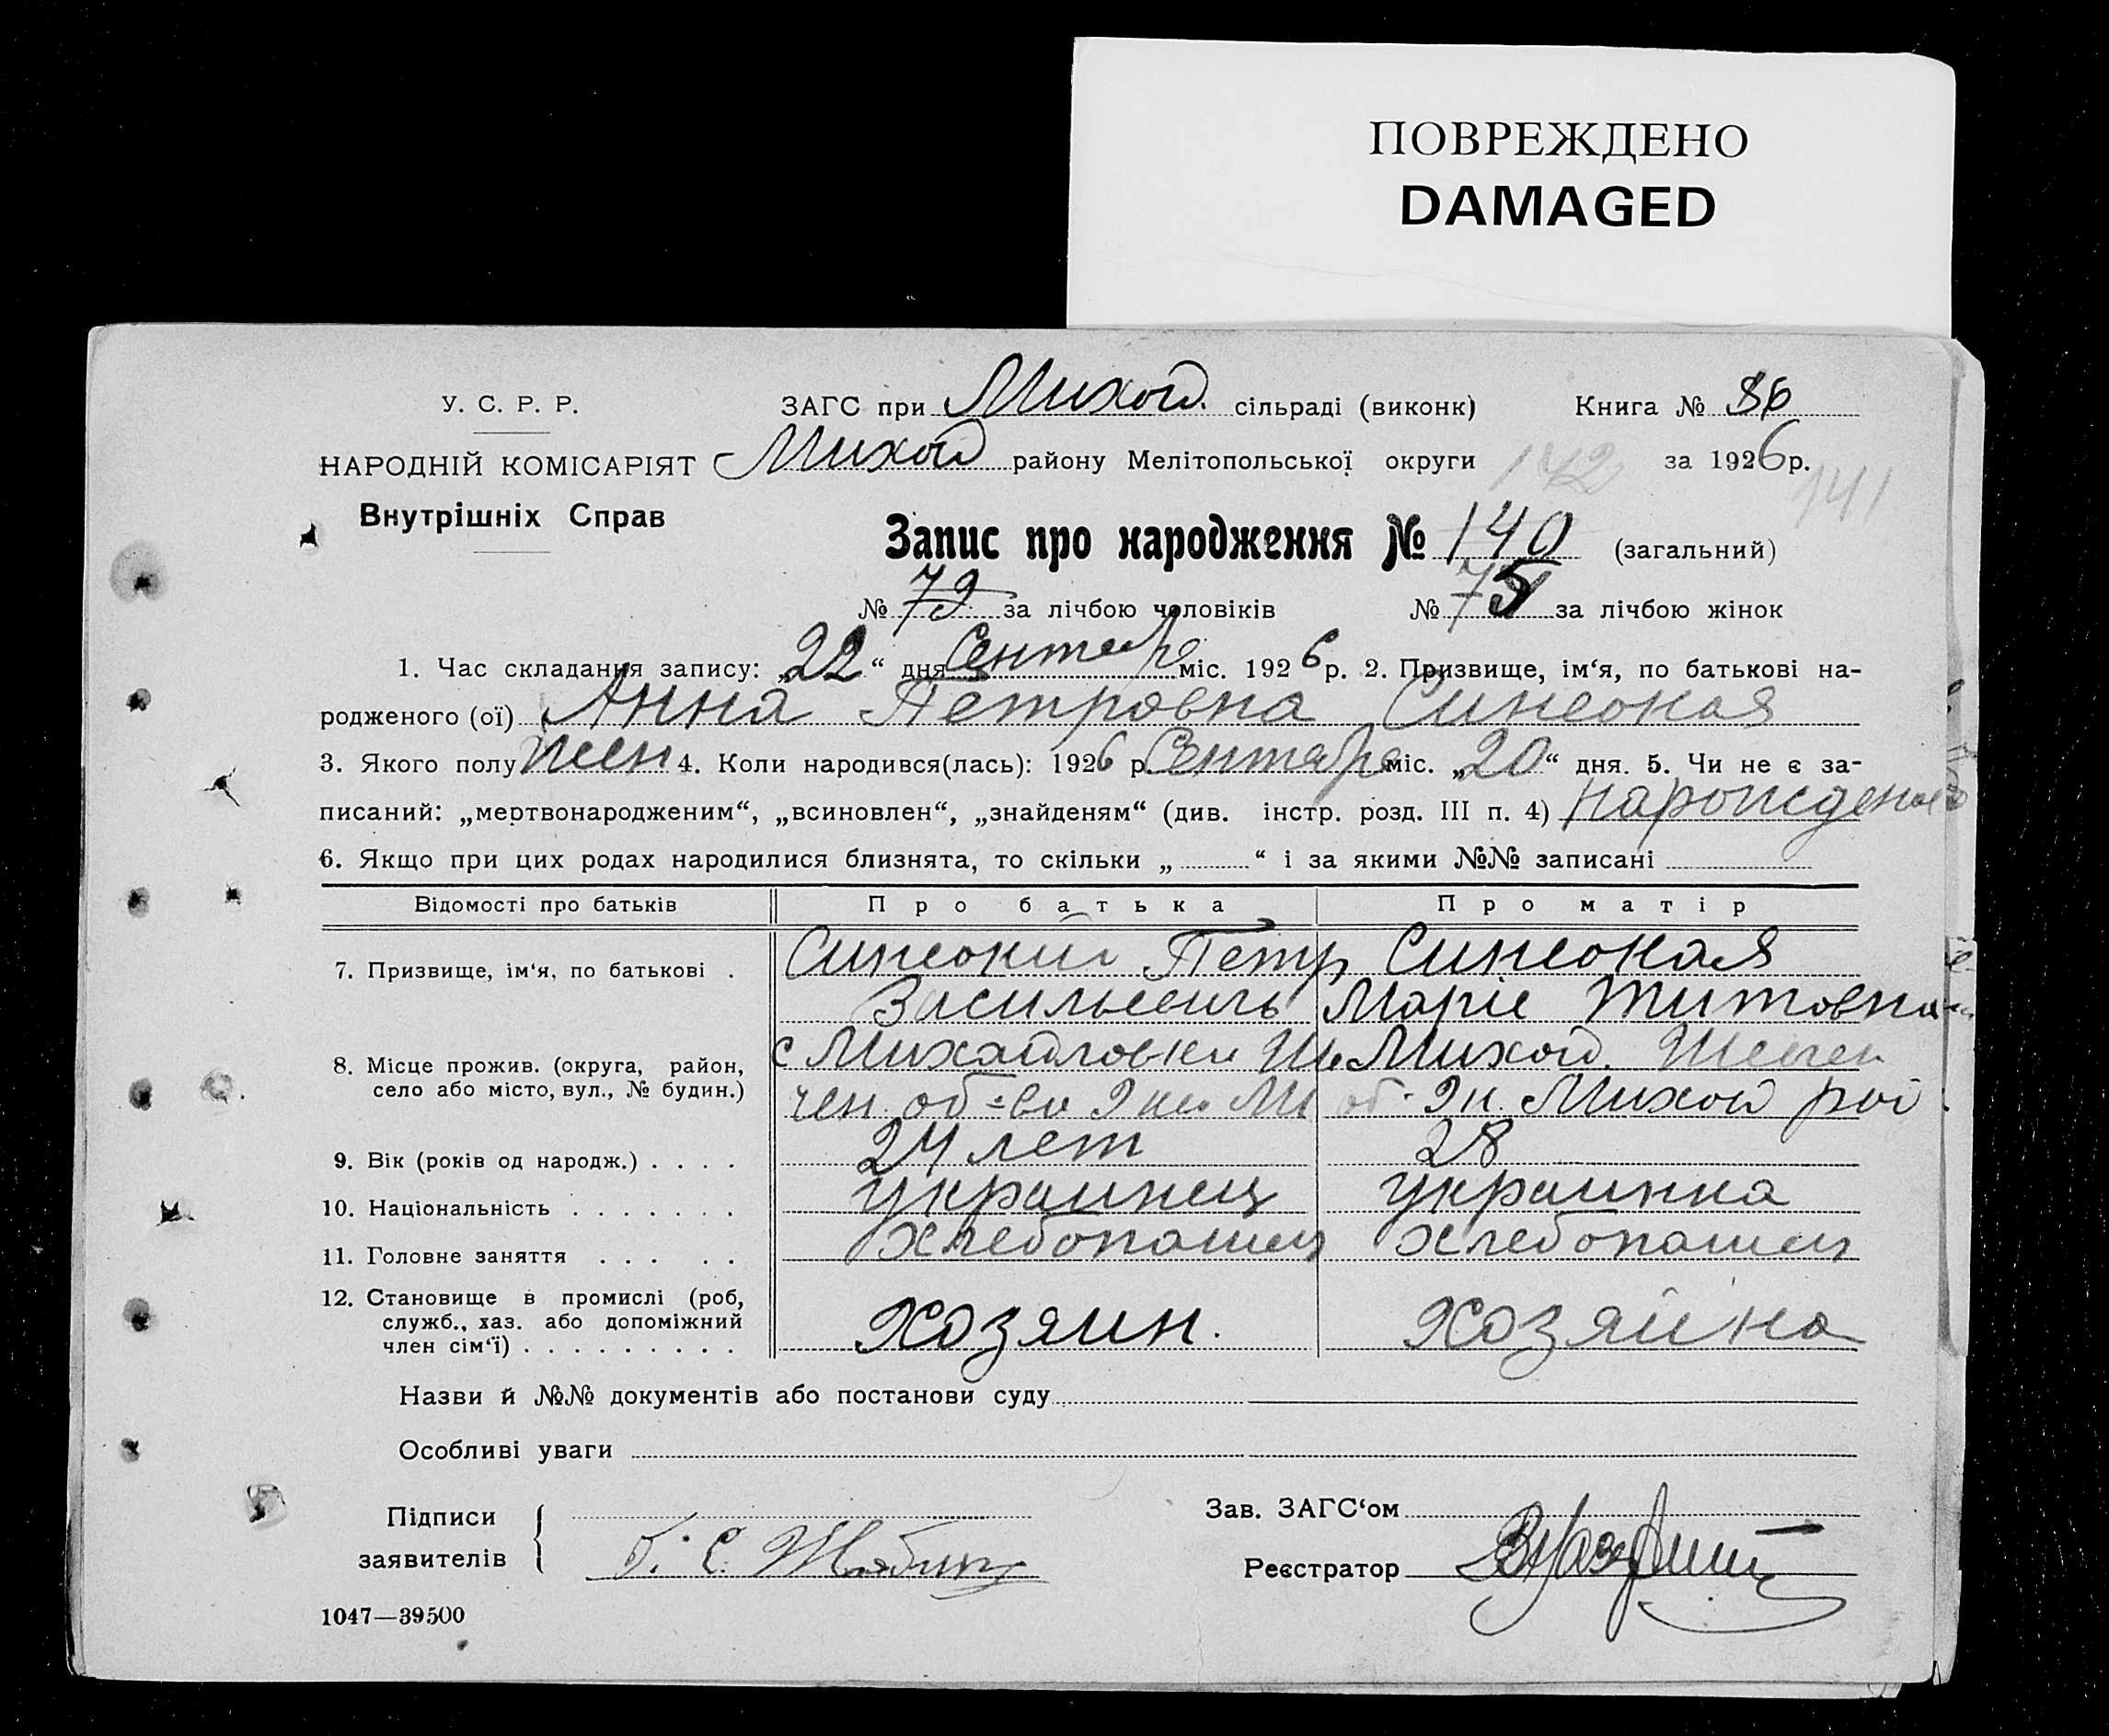 ПОВРЕЖДЕНО
DAMAGED
У. С. Р. Р.
ЗАГС при Михай. сільраді (виконк) Книга № 86
НАРОДНІЙ КОМІСАРІЯТ Михай району Мелітопольської округи 142 за 1926 р. 141
Внутрішніх Справ
Запис про народження № 140 (загальний)
№ 73 за лічбою чоловіків № 75 за лічбою жінок
1. Час складання запису: „22“ дня Сентябре міс. 1926 р. 2. Призвище, ім‘я, по батькові на-
родженого (ої) Анна Петровна Синеокая
3. Якого полу жен 4. Коли народився(лась): 1926 р Сентабре міс. „20“ дня. 5. Чи не є за-
писаний: „мертвонародженим“, „всиновлен“, „знайденям“ (див. інстр. розд. III п. 4)
6. Якщо при цих родах народилися близнята, то скільки „ “ і за якими №№ записані
Відомості про батьків Про батька Про матір
7. Призвище, ім‘я, по батькові . Синеокий Петр Синеокая
Васильевичь Маріе Титовна
8. Місце прожив. (округа, район, с Михайловки Ше Михай. Шевчен
село або місто, вул., № будин.) чен. об=ва об. Михай
9. Вік (років од народж.) . . . . 24 лет 28
10. Національність . . . . . . . украинец украинка
11. Головне заняття . . . . . хлебопашец хлебопашец
12. Становище в промислі (роб,
служб., хаз. або допоміжний Хозяин. Хозяйна
член сім‘ї) . . . . . . . . .
Назви й №№ документів або постанови суду
Особливі уваги
Підписи
Зав. ЗАГС‘ом
заявителів
Реєстратор
1047—39500